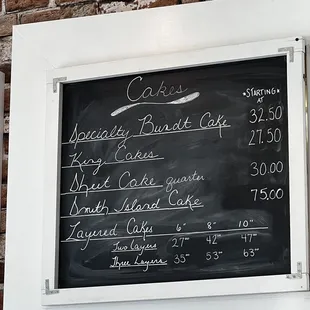 Cakes
•STARTING•
AT
Specialty Bundt Cake 32.50
King Cakes 27.50
Sheet Cake quarter 30.00
Smith Island Cake 75.00
Layered Cakes 6" 8" 10"
Two Layers 27⁰⁰ 42⁰⁰ 47⁰⁰
Three Layers 35⁰⁰ 53⁰⁰ 63⁰⁰